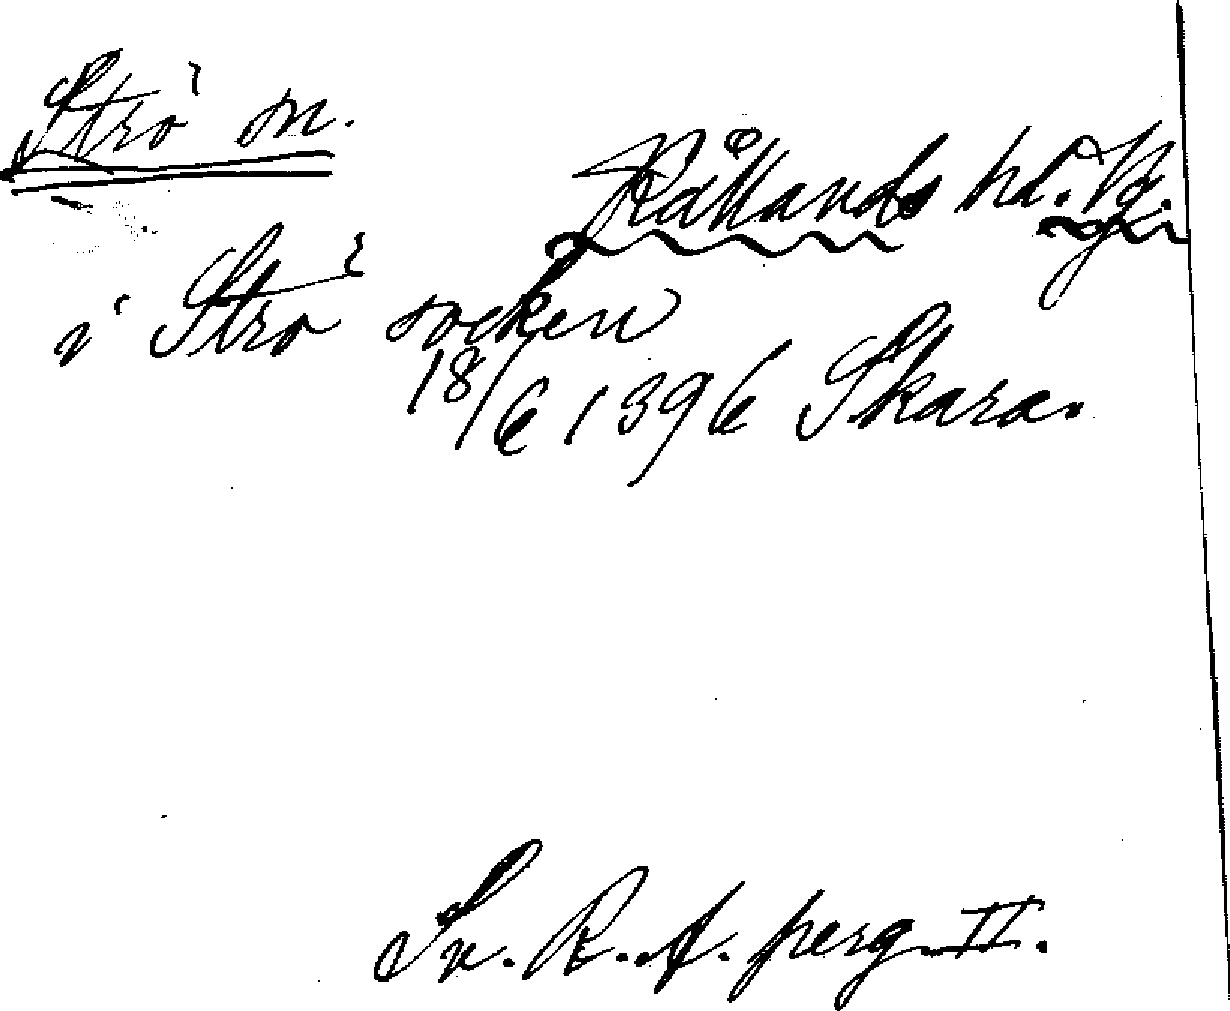 Strö sn.
Kållands hd. Vg.
i Strö socken
18/6 1396 Skara.
Sv. R. A. perg. II.